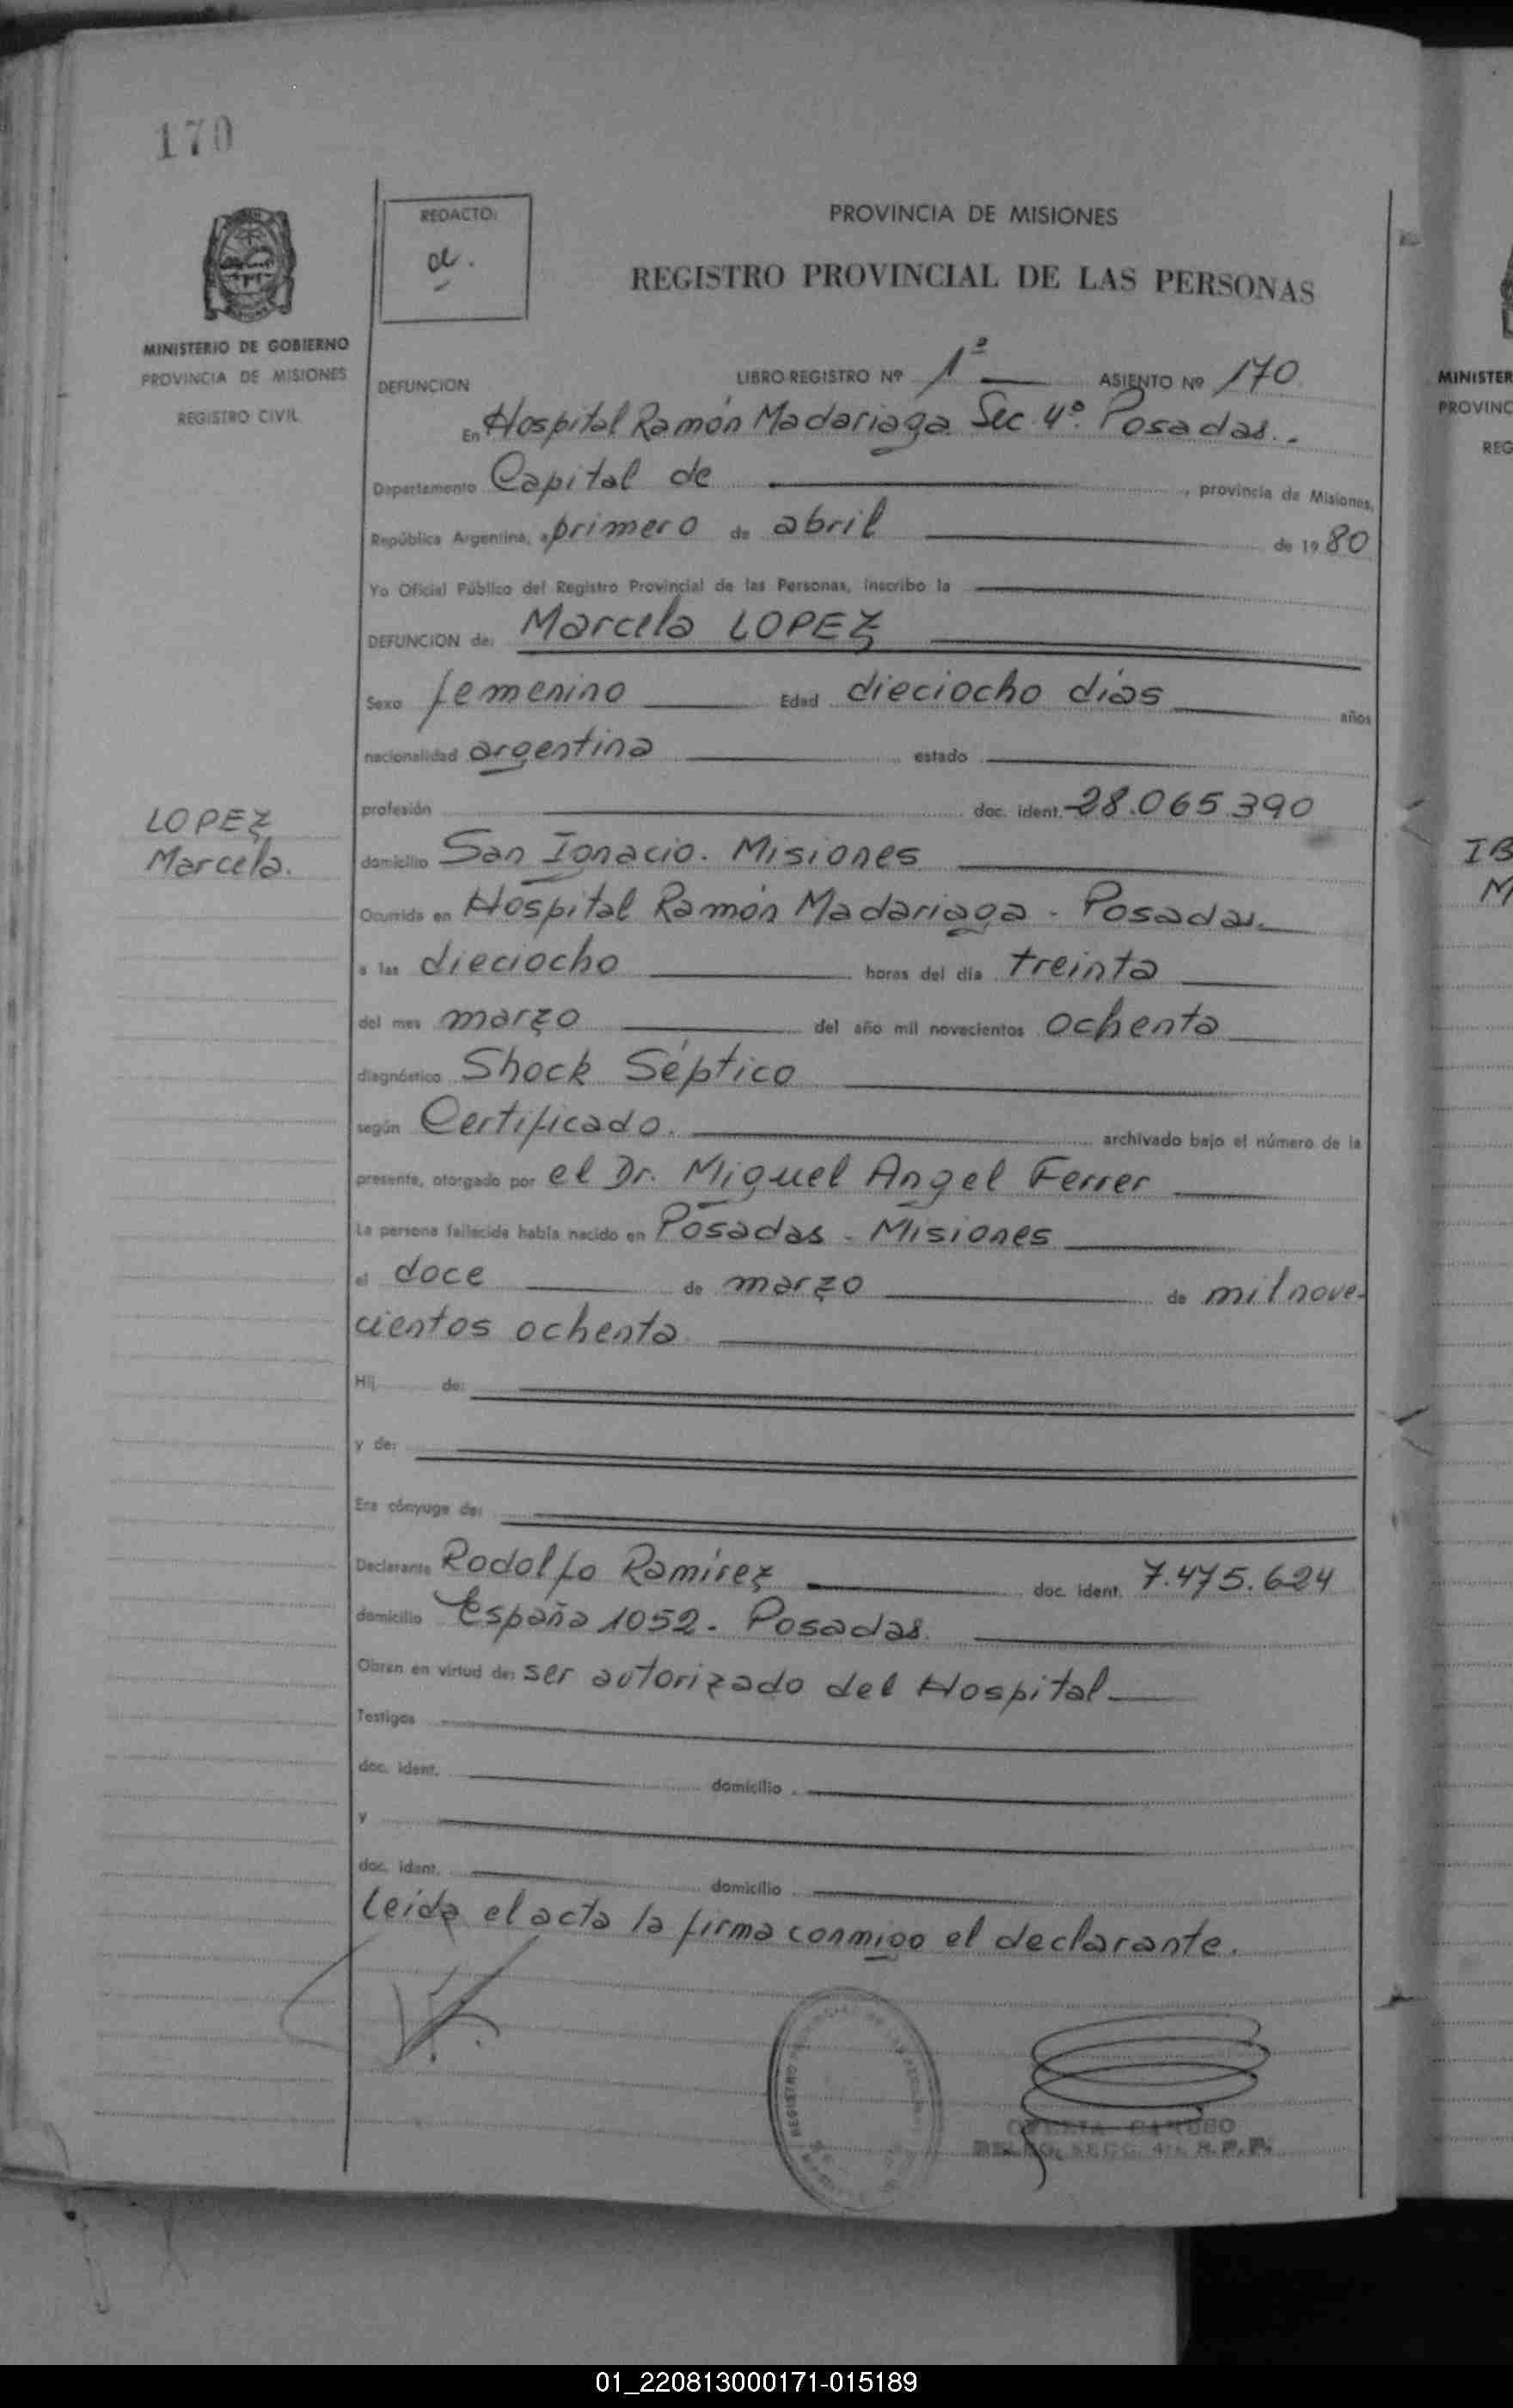 170
REDACTO:
PROVINCIA DE MISIONES
REGISTRO PROVINCIAL DE LAS PERSONAS
MINISTERIO DE GOBIERNO
PROVINCIA DE MISIONES
REGISTRO CIVIL
DEFUNCION LIBRO REGISTRO Nº 1º ASIENTO Nº 170
En Hospital Ramón Madariaga Sec. 4º. Posadas.-
Departamento Capital de , provincia de Misiones,
República Argentina, a primero de abril de 1980
Yo Oficial Público del Registro Provincial de las Personas, inscribo la
DEFUNCION de: Marcela LOPEZ
Sexo femenino Edad dieciocho dias años
nacionalidad argentina estado
profesión doc. ident. 28.065.390
LOPEZ
Marcela.
domicilio San Ignacio. Misiones
Ocurrida en Hospital Ramón Madariaga - Posadas.
a las dieciocho horas del día treinta
del mes marzo del año mil novecientos ochenta
diagnóstico Shock Séptico
según Certificado. archivado bajo el número de la
presente, otorgado por el Dr. Miguel Angel Ferrer
La persona fallecida había nacido en Posadas - Misiones
el doce de marzo de mil nove-
cientos ochenta
Hij de:
y de:
Era cónyuge de:
Declarante Rodolfo Ramírez doc. ident. 7.475.624
domicilio España 1052. Posadas.
Obran en virtud de: ser autorizado del Hospital
Testigos
doc. ident. domicilio
y
doc. ident. domicilio
Leida el acta la firma conmigo el declarante.
MINISTER
PROVINC
REG
IB
M
01_220813000171-015189